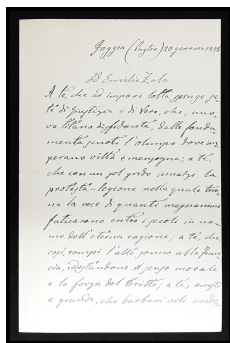 Foggia (Puglia) 20 gennaio 1898
Ad Emilio Zola
A te, che ad impari lotta, spinge, se-
te di Giustizia e di Vero, che, nuo-
vo titano sfidante, dalle fonda-
menta scuoti l'olimpo dove im-
perano viltà e menzogna; a te
che con un sol grido innalzi la
protesta - legione nella quale tuo-
na la voce di quanti magnanimi
faticarono entro i secoli in no-
me dell'eterna ragione, a te, che
così, rompi l'alto sonno alla Fran-
cia, ridestandone il senso morale
e la forza del Dritto; a te, onesto
e grande, che barbari odi